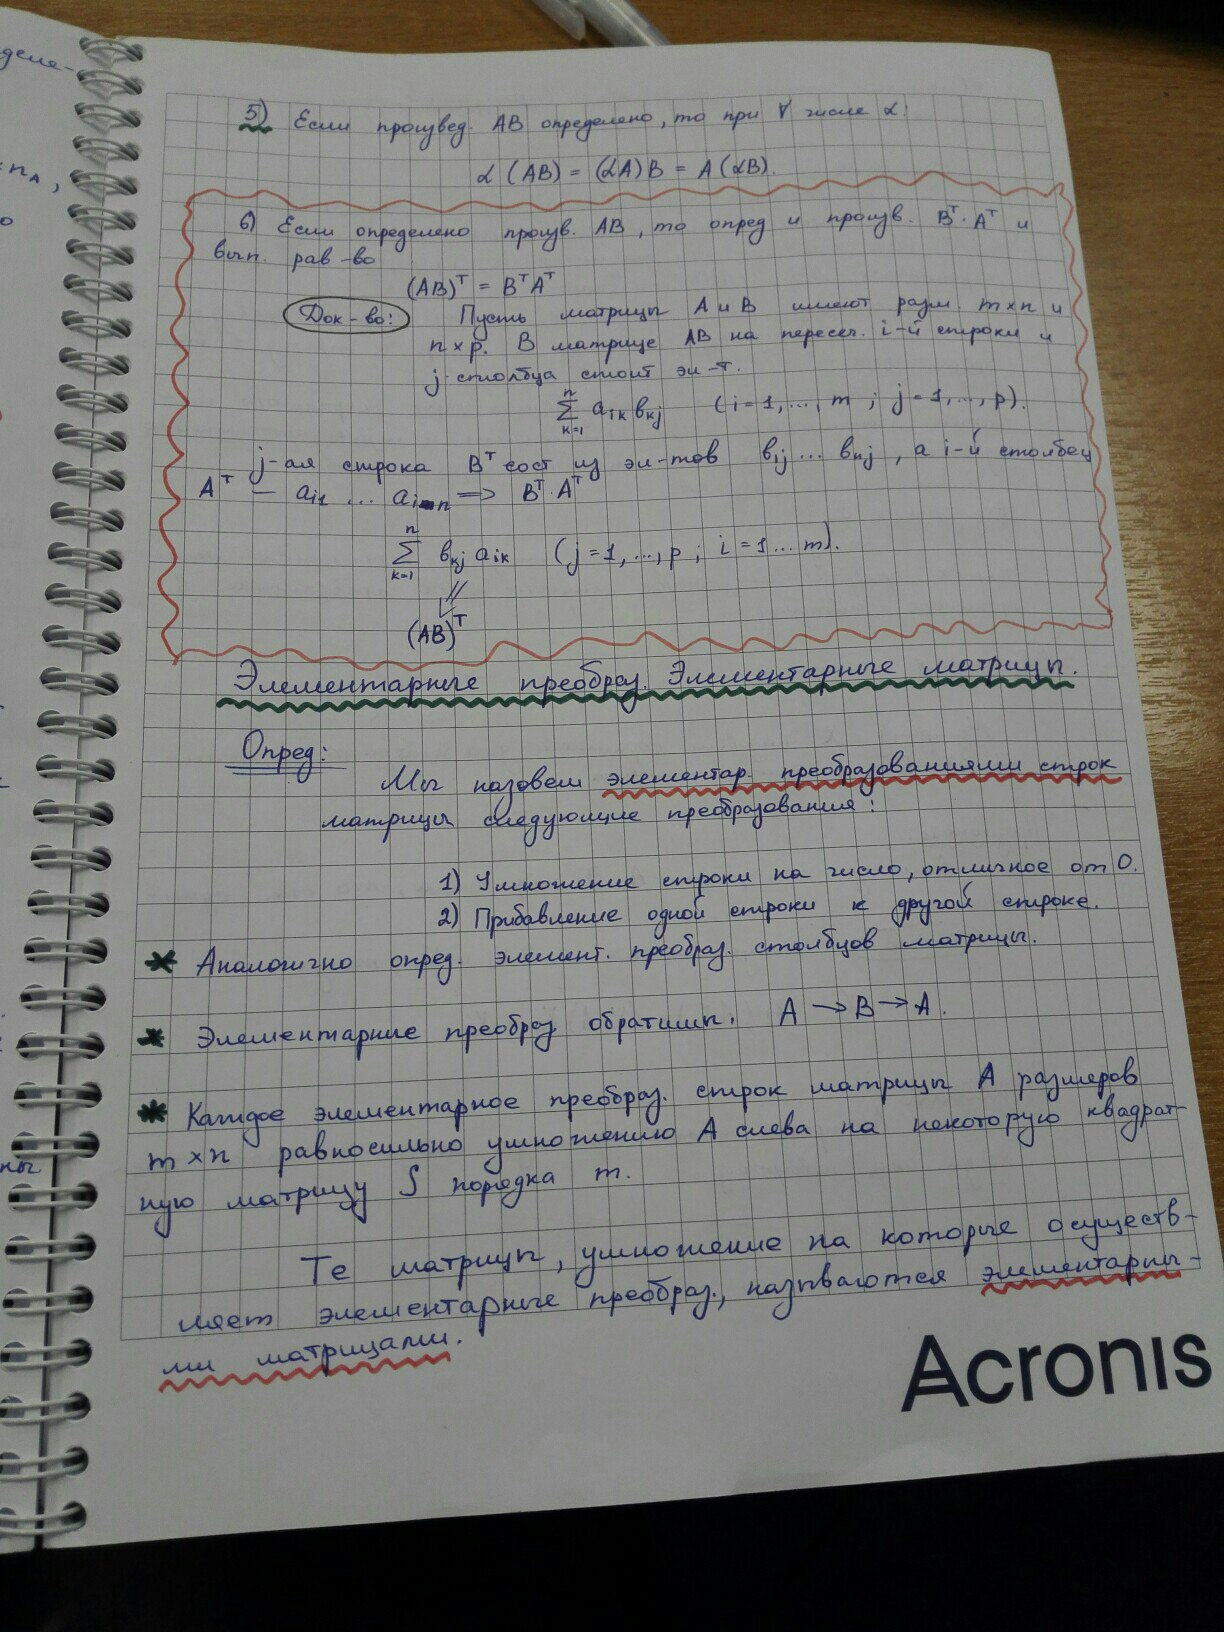 деле-
5) Если произвед. AB определено, то при ∀ числе α:
α (AB) = (αA)B = A(αB).
6) Если определено произв. AB, то опред и произв. Bᵀ·Aᵀ и
вып. рав-во
(AB)ᵀ = BᵀAᵀ
Док-во: Пусть матрицы A и B имеют разм. m×n и
n×p. В матрице AB на пересеч. i-й строки и
j-столбца стоит эл-т.
∑ₖ₌₁ⁿ aᵢₖ bₖⱼ (i=1,...,m ; j=1,...,p).
j-ая строка Bᵀ сост из эл-тов b₁ⱼ ... bₙⱼ, а i-й столбец
Aᵀ — aᵢ₁ ... aᵢₙ => Bᵀ·Aᵀ
∑ₖ₌₁ⁿ bₖⱼ aᵢₖ (j=1,...,p ; i=1...m).
(AB)ᵀ
Элементарные преобраз. Элементарные матрицы.
Опред:
Мы назовем элементар. преобразованиями строк
матрицы следующие преобразования:
1) Умножение строки на число, отличное от 0.
2) Прибавление одной строки к другой строке.
* Аналогично опред. элемент. преобраз. столбцов матрицы.
* Элементарные преобраз. обратимы. A → B → A.
* Каждое элементарное преобраз. строк матрицы A размеров
m×n равносильно умножению A слева на некоторую квадрат-
ную матрицу S порядка m.
Те матрицы, умножение на которые осуществ-
ляет элементарные преобраз., называются элементарны-
ми матрицами.
Acronis